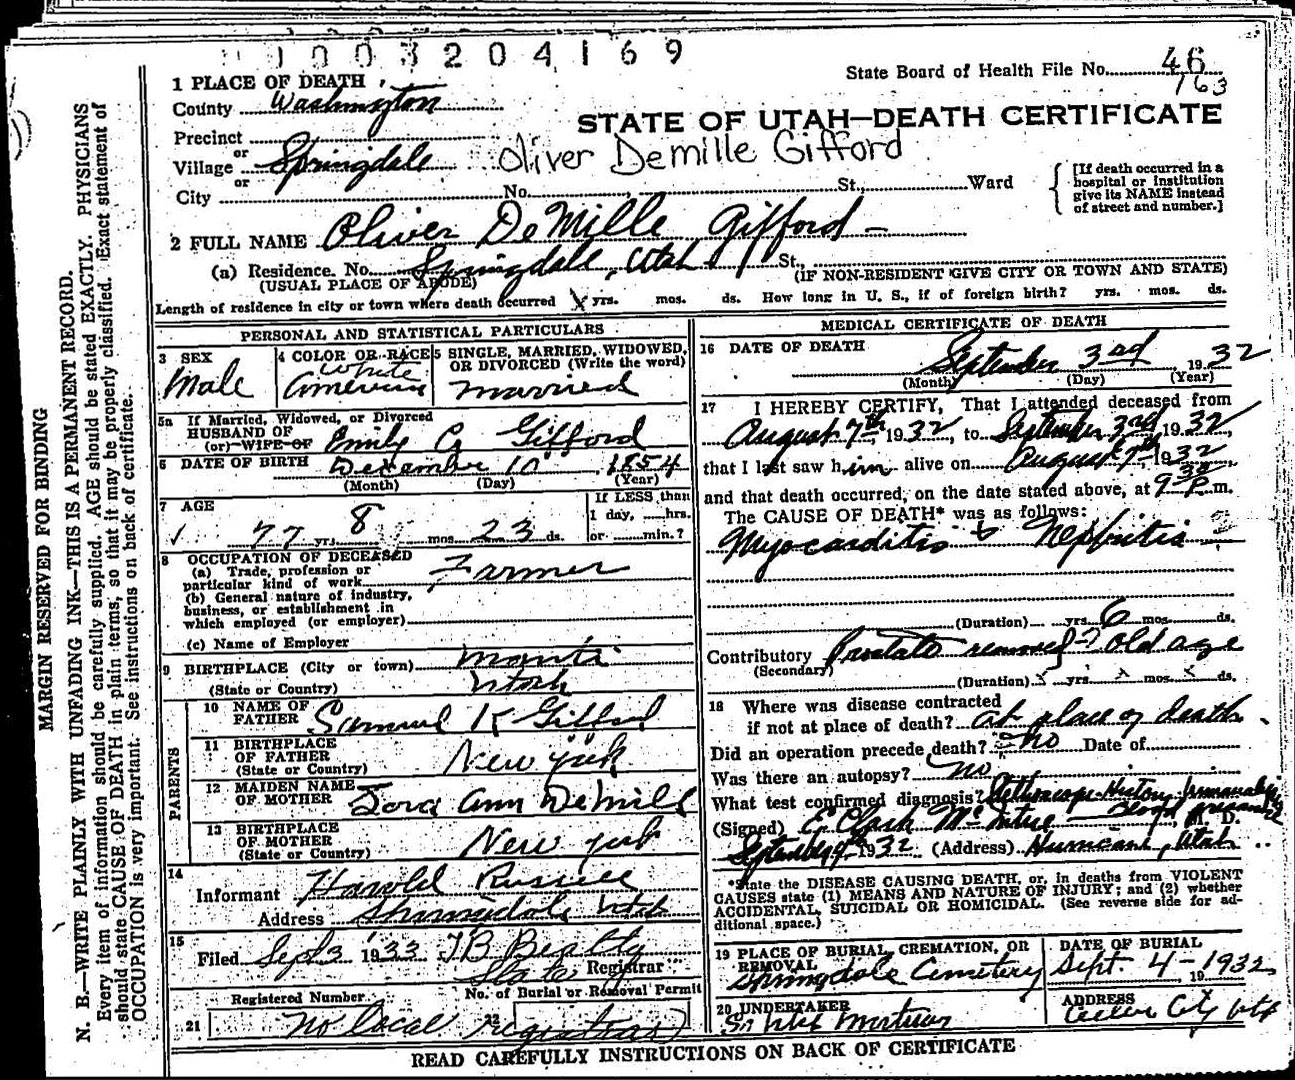 1003204169
State Board of Health File No. 46
163
1 PLACE OF DEATH
County Washington
STATE OF UTAH—DEATH CERTIFICATE
Precinct
or
Village Springdale Oliver Demille Gifford
or
City No. St., Ward
[If death occurred in a
hospital or institution
give its NAME instead
of street and number.]
2 FULL NAME Oliver DeMille Gifford
(a) Residence. No. Springdale, Utah St.,
(USUAL PLACE OF ABODE) (IF NON-RESIDENT GIVE CITY OR TOWN AND STATE)
Length of residence in city or town where death occurred yrs. mos. ds. How long in U. S., if of foreign birth? yrs. mos. ds.
PERSONAL AND STATISTICAL PARTICULARS
3 SEX
Male
4 COLOR OR RACE
White
American
5 SINGLE, MARRIED, WIDOWED,
OR DIVORCED (Write the word)
married
5a If Married, Widowed, or Divorced
HUSBAND OF
(or) WIFE OF Emily C Gifford
6 DATE OF BIRTH December 10 1854
(Month) (Day) (Year)
7 AGE
77 yrs. 8 mos. 23 ds.
If LESS than
1 day, hrs.
or min.?
8 OCCUPATION OF DECEASED
(a) Trade, profession or
particular kind of work Farmer
(b) General nature of industry,
business, or establishment in
which employed (or employer)
(c) Name of Employer
9 BIRTHPLACE (City or town) Manti
(State or Country) Utah
PARENTS
10 NAME OF
FATHER Samuel K Gifford
11 BIRTHPLACE
OF FATHER
(State or Country) New York
12 MAIDEN NAME
OF MOTHER Lora Ann DeMill
13 BIRTHPLACE
OF MOTHER
(State or Country) New York
14
Informant Harold Russell
Address Springdale Utah
15
Filed Sept 3 1933 T B Beatty
State Registrar
Registered Number No. of Burial or Removal Permit
21 No local registrar 22
MEDICAL CERTIFICATE OF DEATH
16 DATE OF DEATH
September 3rd 1932
(Month) (Day) (Year)
17 I HEREBY CERTIFY, That I attended deceased from
August 7th, 1932, to September 3rd 1932
that I last saw him alive on August 7th, 1932
and that death occurred, on the date stated above, at 9 30 P.m.
The CAUSE OF DEATH* was as follows:
Myocarditis & Nephritis
(Duration) yrs. 6 mos. ds.
Contributory Prostate removed old age
(Secondary)
(Duration) x yrs. x mos. x ds.
18 Where was disease contracted
if not at place of death? at place of death.
Did an operation precede death? no Date of
Was there an autopsy? no
What test confirmed diagnosis? Stethoscope-History
Blood pressure
(Signed) E Clark McIntire, M. D.
September 9 1932 (Address) Hurricane, Utah
*State the DISEASE CAUSING DEATH, or, in deaths from VIOLENT
CAUSES state (1) MEANS AND NATURE OF INJURY; and (2) whether
ACCIDENTAL, SUICIDAL OR HOMICIDAL. (See reverse side for ad-
ditional space.)
19 PLACE OF BURIAL, CREMATION, OR
REMOVAL
Springdale Cemetery
DATE OF BURIAL
Sept. 4-1932
20 UNDERTAKER
So Utah Mortuary
ADDRESS
Cedar City Utah
READ CAREFULLY INSTRUCTIONS ON BACK OF CERTIFICATE
MARGIN RESERVED FOR BINDING
N. B.—WRITE PLAINLY WITH UNFADING INK—THIS IS A PERMANENT RECORD.
Every item of information should be carefully supplied. AGE should be stated EXACTLY. PHYSICIANS
should state CAUSE OF DEATH in plain terms, so that it may be properly classified. Exact statement of
OCCUPATION is very important. See instructions on back of certificate.